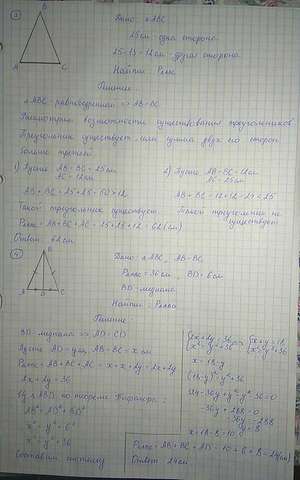 3
B
Дано: △ABC
25см - одна сторона
25-13=12см - другая сторона
A C
Найти: P△ABC
Решение
△ABC - равнобедренный => AB=BC
Рассмотрим возможности существования треугольников
Треугольник существует, если сумма двух его сторон
больше третьей
1) Пусть AB=BC=25см
AC=12см
AB+BC=25+25=50>12
Такой треугольник существует
2) Пусть AB=BC=12см
AC=25см
AB+BC=12+12=24<25
Такой треугольник не
существует
P△ABC=AB+BC+AC=25+25+12=62(см)
Ответ: 62см
4
B
Дано: △ABC, AB=BC
P△ABC=36см, BD=6см
BD-медиана
A D C
Найти: P△ABD
Решение
BD-медиана => AD=CD
Пусть AD=yсм, AB=BC=xсм
P△ABC=AB+BC+AC=x+x+2y=2x+2y
2x+2y=36
△ABD по теореме Пифагора:
AB²=AD²+BD²
x²=y²+6²
x²=y²+36
Составим систему
{2x+2y=36 {x+y=18
{x²=y²+36 {x²=y²+36
x=18-y
(18-y)²=y²+36
-36y+288=0
-36y=-288
y=8
x=18-8=10
P△ABD=AB+BD+AD=10+6+8=24(см)
Ответ: 24см